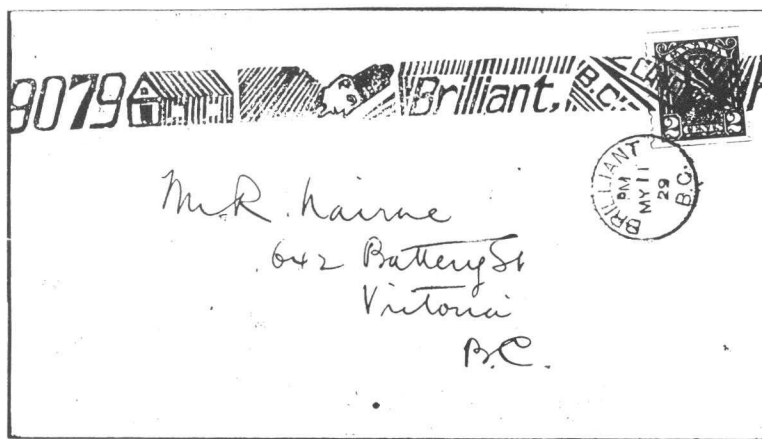 9079 Brilliant, B.C.
2 CENTS 2
BRILLIANT
PM
MY 11
29
B.C.
Mr. R. Nairne
642 Battery St
Victoria
B.C.